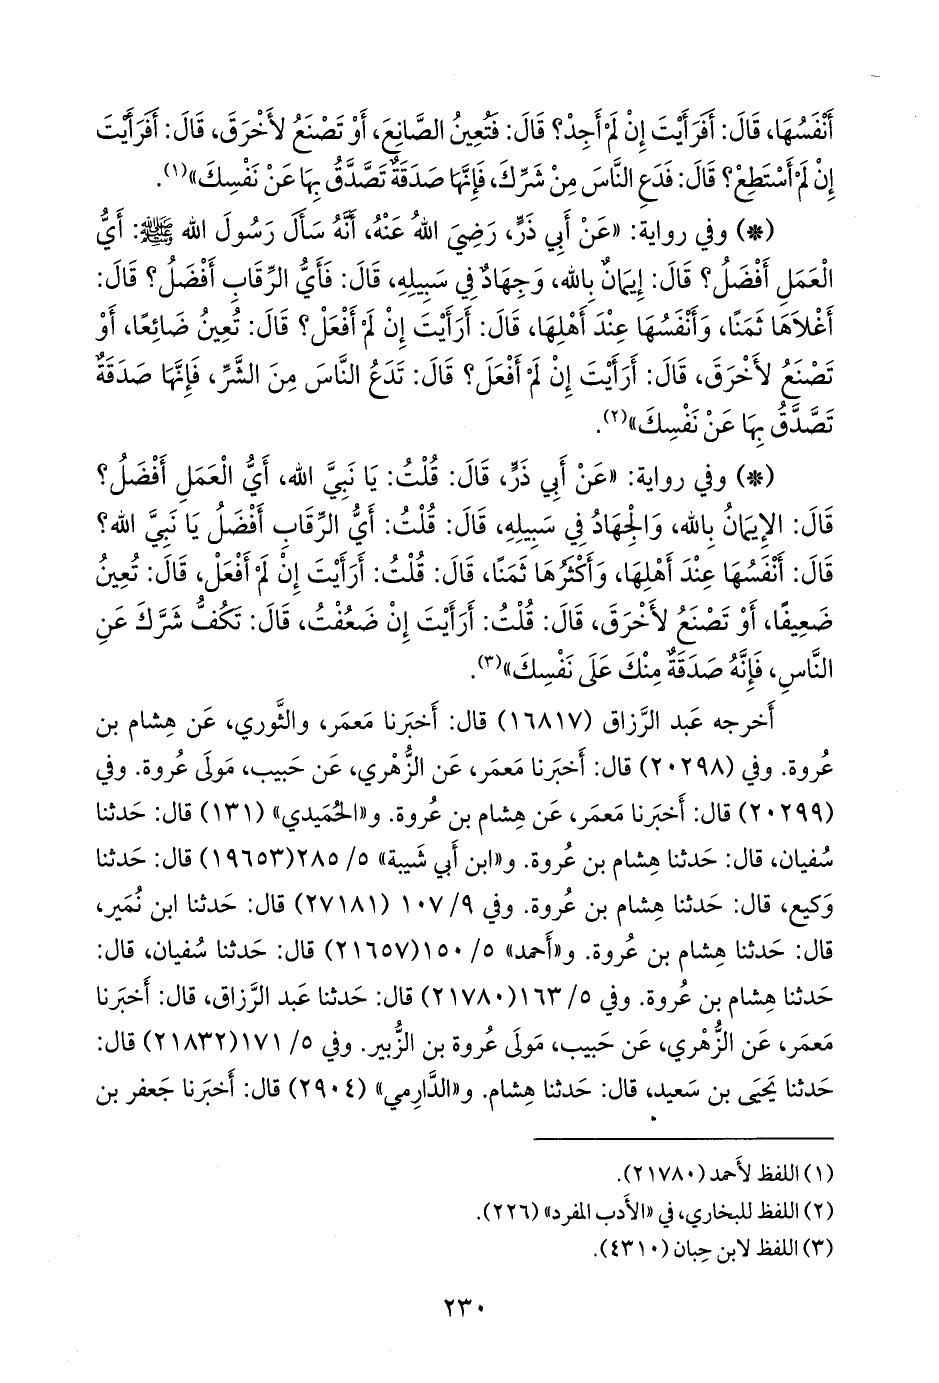 أَنْفَسُهَا، قَالَ: أَفَرَأَيْتَ إِنْ لَمْ أَجِدْ؟ قَالَ: فَتُعِينُ الصَّانِعَ، أَوْ تَصْنَعُ لأَخْرَقَ، قَالَ: أَفَرَأَيْتَ
إِنْ لَمْ أَسْتَطِعْ؟ قَالَ: فَدَعِ النَّاسَ مِنْ شَرِّكَ، فَإِنَّهَا صَدَقَةٌ تَصَّدَّقُ بِهَا عَنْ نَفْسِكَ»(١).
(*) وفي رواية: «عَنْ أَبِي ذَرٍّ، رَضِيَ اللهُ عَنْهُ، أَنَّهُ سَأَلَ رَسُولَ الله ﷺ: أَيُّ
الْعَمَلِ أَفْضَلُ؟ قَالَ: إِيمَانٌ بِالله، وَجِهَادٌ فِي سَبِيلِهِ، قَالَ: فَأَيُّ الرِّقَابِ أَفْضَلُ؟ قَالَ:
أَغْلَاهَا ثَمَنًا، وَأَنْفَسُهَا عِنْدَ أَهْلِهَا، قَالَ: أَرَأَيْتَ إِنْ لَمْ أَفْعَلْ؟ قَالَ: تُعِينُ ضَائِعًا، أَوْ
تَصْنَعُ لأَخْرَقَ، قَالَ: أَرَأَيْتَ إِنْ لَمْ أَفْعَلَ؟ قَالَ: تَدَعُ النَّاسَ مِنَ الشَّرِّ، فَإِنَّهَا صَدَقَةٌ
تَصَّدَّقُ بِهَا عَنْ نَفْسِكَ»(٢).
(*) وفي رواية: «عَنْ أَبِي ذَرٍّ، قَالَ: قُلْتُ: يَا نَبِيَّ الله، أَيُّ الْعَمَلِ أَفْضَلُ؟
قَالَ: الإِيمَانُ بِالله، وَالْجِهَادُ فِي سَبِيلِهِ، قَالَ: قُلْتُ: أَيُّ الرِّقَابِ أَفْضَلُ يَا نَبِيَّ الله؟
قَالَ: أَنْفَسُهَا عِنْدَ أَهْلِهَا، وَأَكْثَرُهَا ثَمَنًا، قَالَ: قُلْتُ: أَرَأَيْتَ إِنْ لَمْ أَفْعَلْ، قَالَ: تُعِينُ
ضَعِيفًا، أَوْ تَصْنَعُ لأَخْرَقَ، قَالَ: قُلْتُ: أَرَأَيْتَ إِنْ ضَعُفْتُ، قَالَ: تَكُفُّ شَرَّكَ عَنِ
النَّاسِ، فَإِنَّهُ صَدَقَةٌ مِنْكَ عَلَى نَفْسِكَ»(٣).
أَخرجه عَبد الرَّزاق (١٦٨١٧) قال: أَخبَرنا مَعمَر، والثَّوري، عَن هِشام بن
عُروة. وفي (٢٠٢٩٨) قال: أَخبَرنا مَعمَر، عَن الزُّهْري، عَن حَبيب، مَولَى عُروة. وفي
(٢٠٢٩٩) قال: أَخبَرنا مَعمَر، عَن هِشام بن عُروة. و«الحُمَيدي» (١٣١) قال: حَدثنا
سُفيان، قال: حَدثنا هِشام بن عُروة. و«ابن أَبي شَيبة» ٥/ ٢٨٥(١٩٦٥٣) قال: حَدثنا
وَكيع، قال: حَدثنا هِشام بن عُروة. وفي ٩/ ١٠٧ (٢٧١٨١) قال: حَدثنا ابن نُمَير،
قال: حَدثنا هِشام بن عُروة. و«أَحمد» ٥/ ١٥٠(٢١٦٥٧) قال: حَدثنا سُفيان، قال:
حَدثنا هِشام بن عُروة. وفي ٥/ ١٦٣(٢١٧٨٠) قال: حَدثنا عَبد الرَّزاق، قال: أَخبَرنا
مَعمَر، عَن الزُّهْري، عَن حَبيب، مَولَى عُروة بن الزُّبير. وفي ٥/ ١٧١(٢١٨٣٢) قال:
حَدثنا يَحيَى بن سَعيد، قال: حَدثنا هِشام. و«الدَّارِمي» (٢٩٠٤) قال: أَخبَرنا جَعفر بن
(١) اللفظ لأَحمد (٢١٧٨٠).
(٢) اللفظ للبخاري، في «الأَدب المفرد» (٢٢٦).
(٣) اللفظ لابن حِبان (٤٣١٠).
٢٣٠